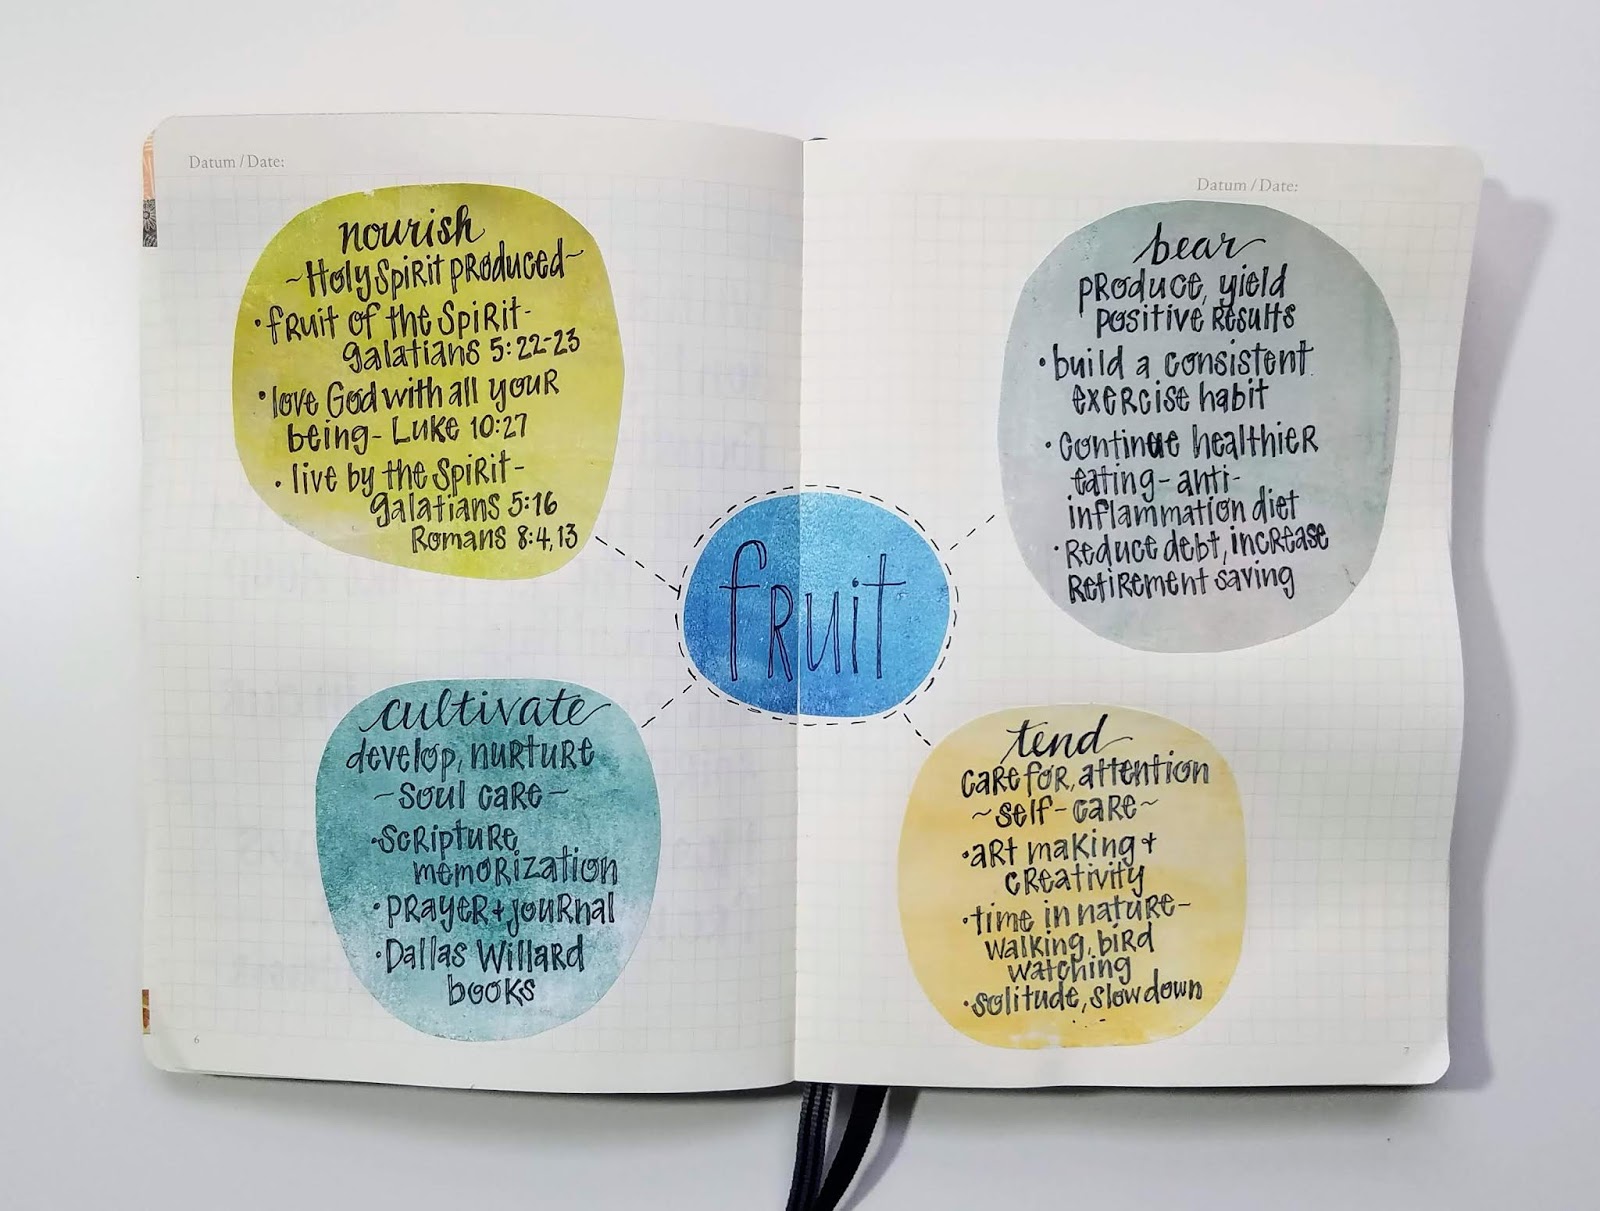 Datum / Date:
nourish
~Holy Spirit produced~
• fruit of the Spirit-
galatians 5:22-23
• love God with all your
being- Luke 10:27
• live by the Spirit-
galatians 5:16
Romans 8:4,13
cultivate
develop, nurture
~soul care~
• scripture
memorization
• prayer + journal
• Dallas Willard
books
6
fruit
Datum / Date:
bear
produce, yield
positive results
• build a consistent
exercise habit
• continue healthier
eating- anti-
inflammation diet
• Reduce debt, increase
Retirement saving
tend
care for, attention
~self-care~
• art making +
creativity
• time in nature-
walking, bird
watching
• solitude, slow down
7